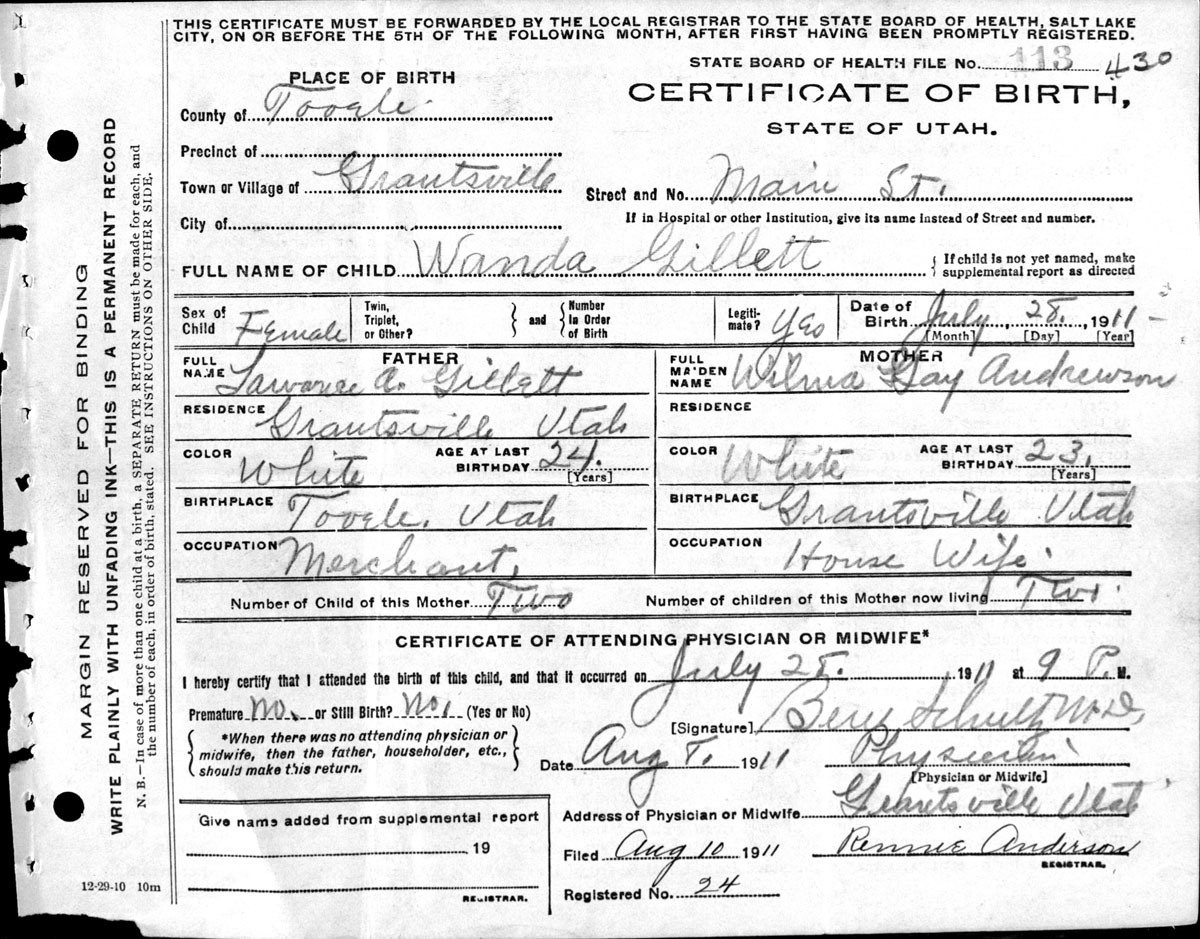 THIS CERTIFICATE MUST BE FORWARDED BY THE LOCAL REGISTRAR TO THE STATE BOARD OF HEALTH, SALT LAKE
CITY, ON OR BEFORE THE 5TH OF THE FOLLOWING MONTH, AFTER FIRST HAVING BEEN PROMPTLY REGISTERED.
STATE BOARD OF HEALTH FILE NO. 113 430
PLACE OF BIRTH
CERTIFICATE OF BIRTH,
STATE OF UTAH.
County of Tooele.
Precinct of
Town or Village of Grantsville
Street and No. Main St.
City of
If in Hospital or other Institution, give its name instead of Street and number.
FULL NAME OF CHILD Wanda Gillett
{ If child is not yet named, make
supplemental report as directed
Sex of Child Female
Twin, Triplet, or Other? } and { Number In Order of Birth
Legiti-mate? Yes
Date of Birth July 28, 1911
[Month] [Day] [Year]
FATHER
FULL NAME Lawrence A. Gillett
RESIDENCE Grantsville Utah
COLOR White AGE AT LAST BIRTHDAY 24. [Years]
BIRTHPLACE Tooele, Utah
OCCUPATION Merchant,
MOTHER
FULL MAIDEN NAME Wilma Gay
RESIDENCE
COLOR White AGE AT LAST BIRTHDAY 23, [Years]
BIRTHPLACE Grantsville Utah
OCCUPATION House Wife.
Number of Child of this Mother Two Number of children of this Mother now living Two.
CERTIFICATE OF ATTENDING PHYSICIAN OR MIDWIFE*
I hereby certify that I attended the birth of this child, and that it occurred on July 28. , 1911 at 9 P. M.
Premature No. or Still Birth? No, (Yes or No)
{ *When there was no attending physician or
midwife, then the father, householder, etc.,
should make this return. }
[Signature] M.D.
Date Aug 1911 Physician
[Physician or Midwife]
Address of Physician or Midwife Grantsville Utah
Filed Aug 10 1911 Rennie Anderson
REGISTRAR.
Registered No. 24
Give name added from supplemental report
, 19
REGISTRAR.
MARGIN RESERVED FOR BINDING
WRITE PLAINLY WITH UNFADING INK—THIS IS A PERMANENT RECORD
N. B.—In case of more than one child at a birth, a SEPARATE RETURN must be made for each, and
the number of each, in order of birth, stated. SEE INSTRUCTIONS ON OTHER SIDE.
12-29-10 10m